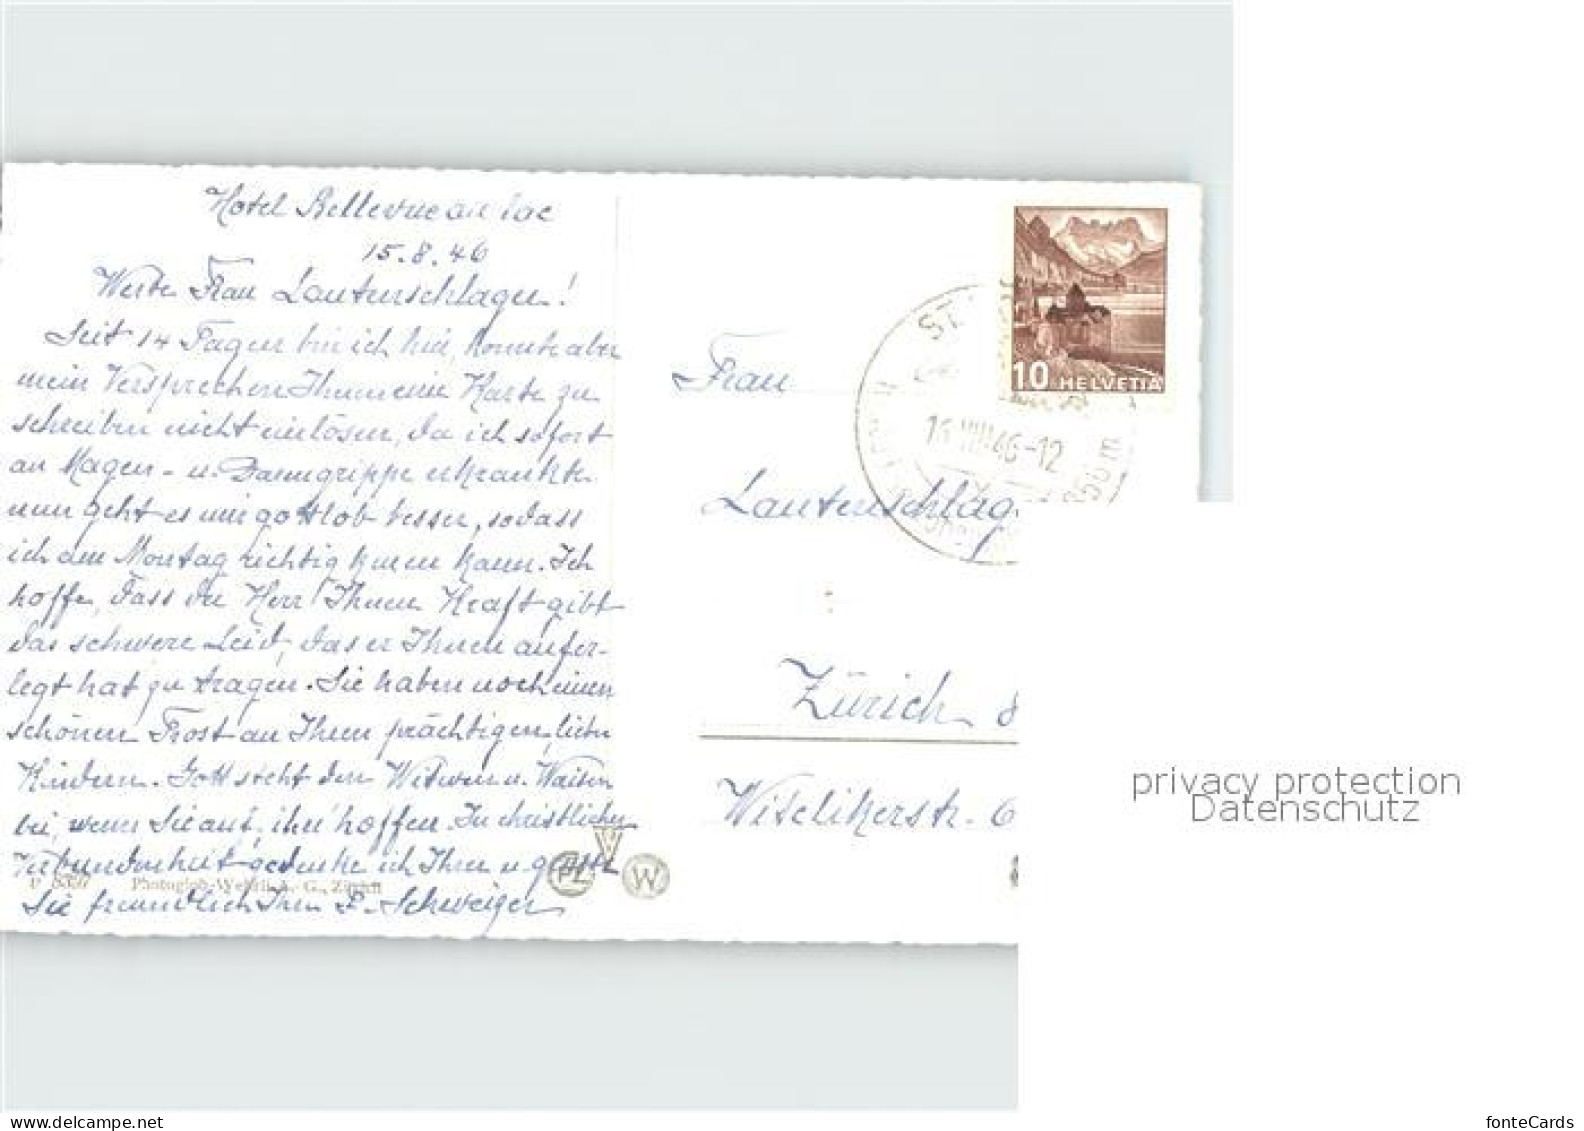 Hotel Bellevue au lac
15.8.46
Werte Frau Lautenschlager!
Seit 14 Tagen bin ich hier, konnte aber
mein Versprechen Ihnen eine Karte zu
schreiben nicht einlösen, da ich sofort
an Magen- u. Darmgrippe erkrankte
nun geht es mir gottlob besser, sodass
ich am Montag richtig kuren kann. Ich
hoffe, dass der Herr Ihnen Kraft gibt
das schwere Leid, das er Ihnen aufer-
legt hat zu tragen. Sie haben noch einen
schönen Trost an Ihren prächtigen, lieben
Kindern. Gott steht den Witwen u. Waisen
bei, wenn Sie auf ihn hoffen. In christlicher
Verbundenheit gedenke ich Ihrer u. grüsse
Sie freundlich Ihre P. Schweizer
Photoglob-Wehrli A.-G., Zürich
PZ V W
10 HELVETIA
ST.
16.VIII.46-12
Frau
Lautenschlag
Zürich 8
Wiselikerstr. 6
privacy protection
Datenschutz
www.delcampe.net
fonteCards